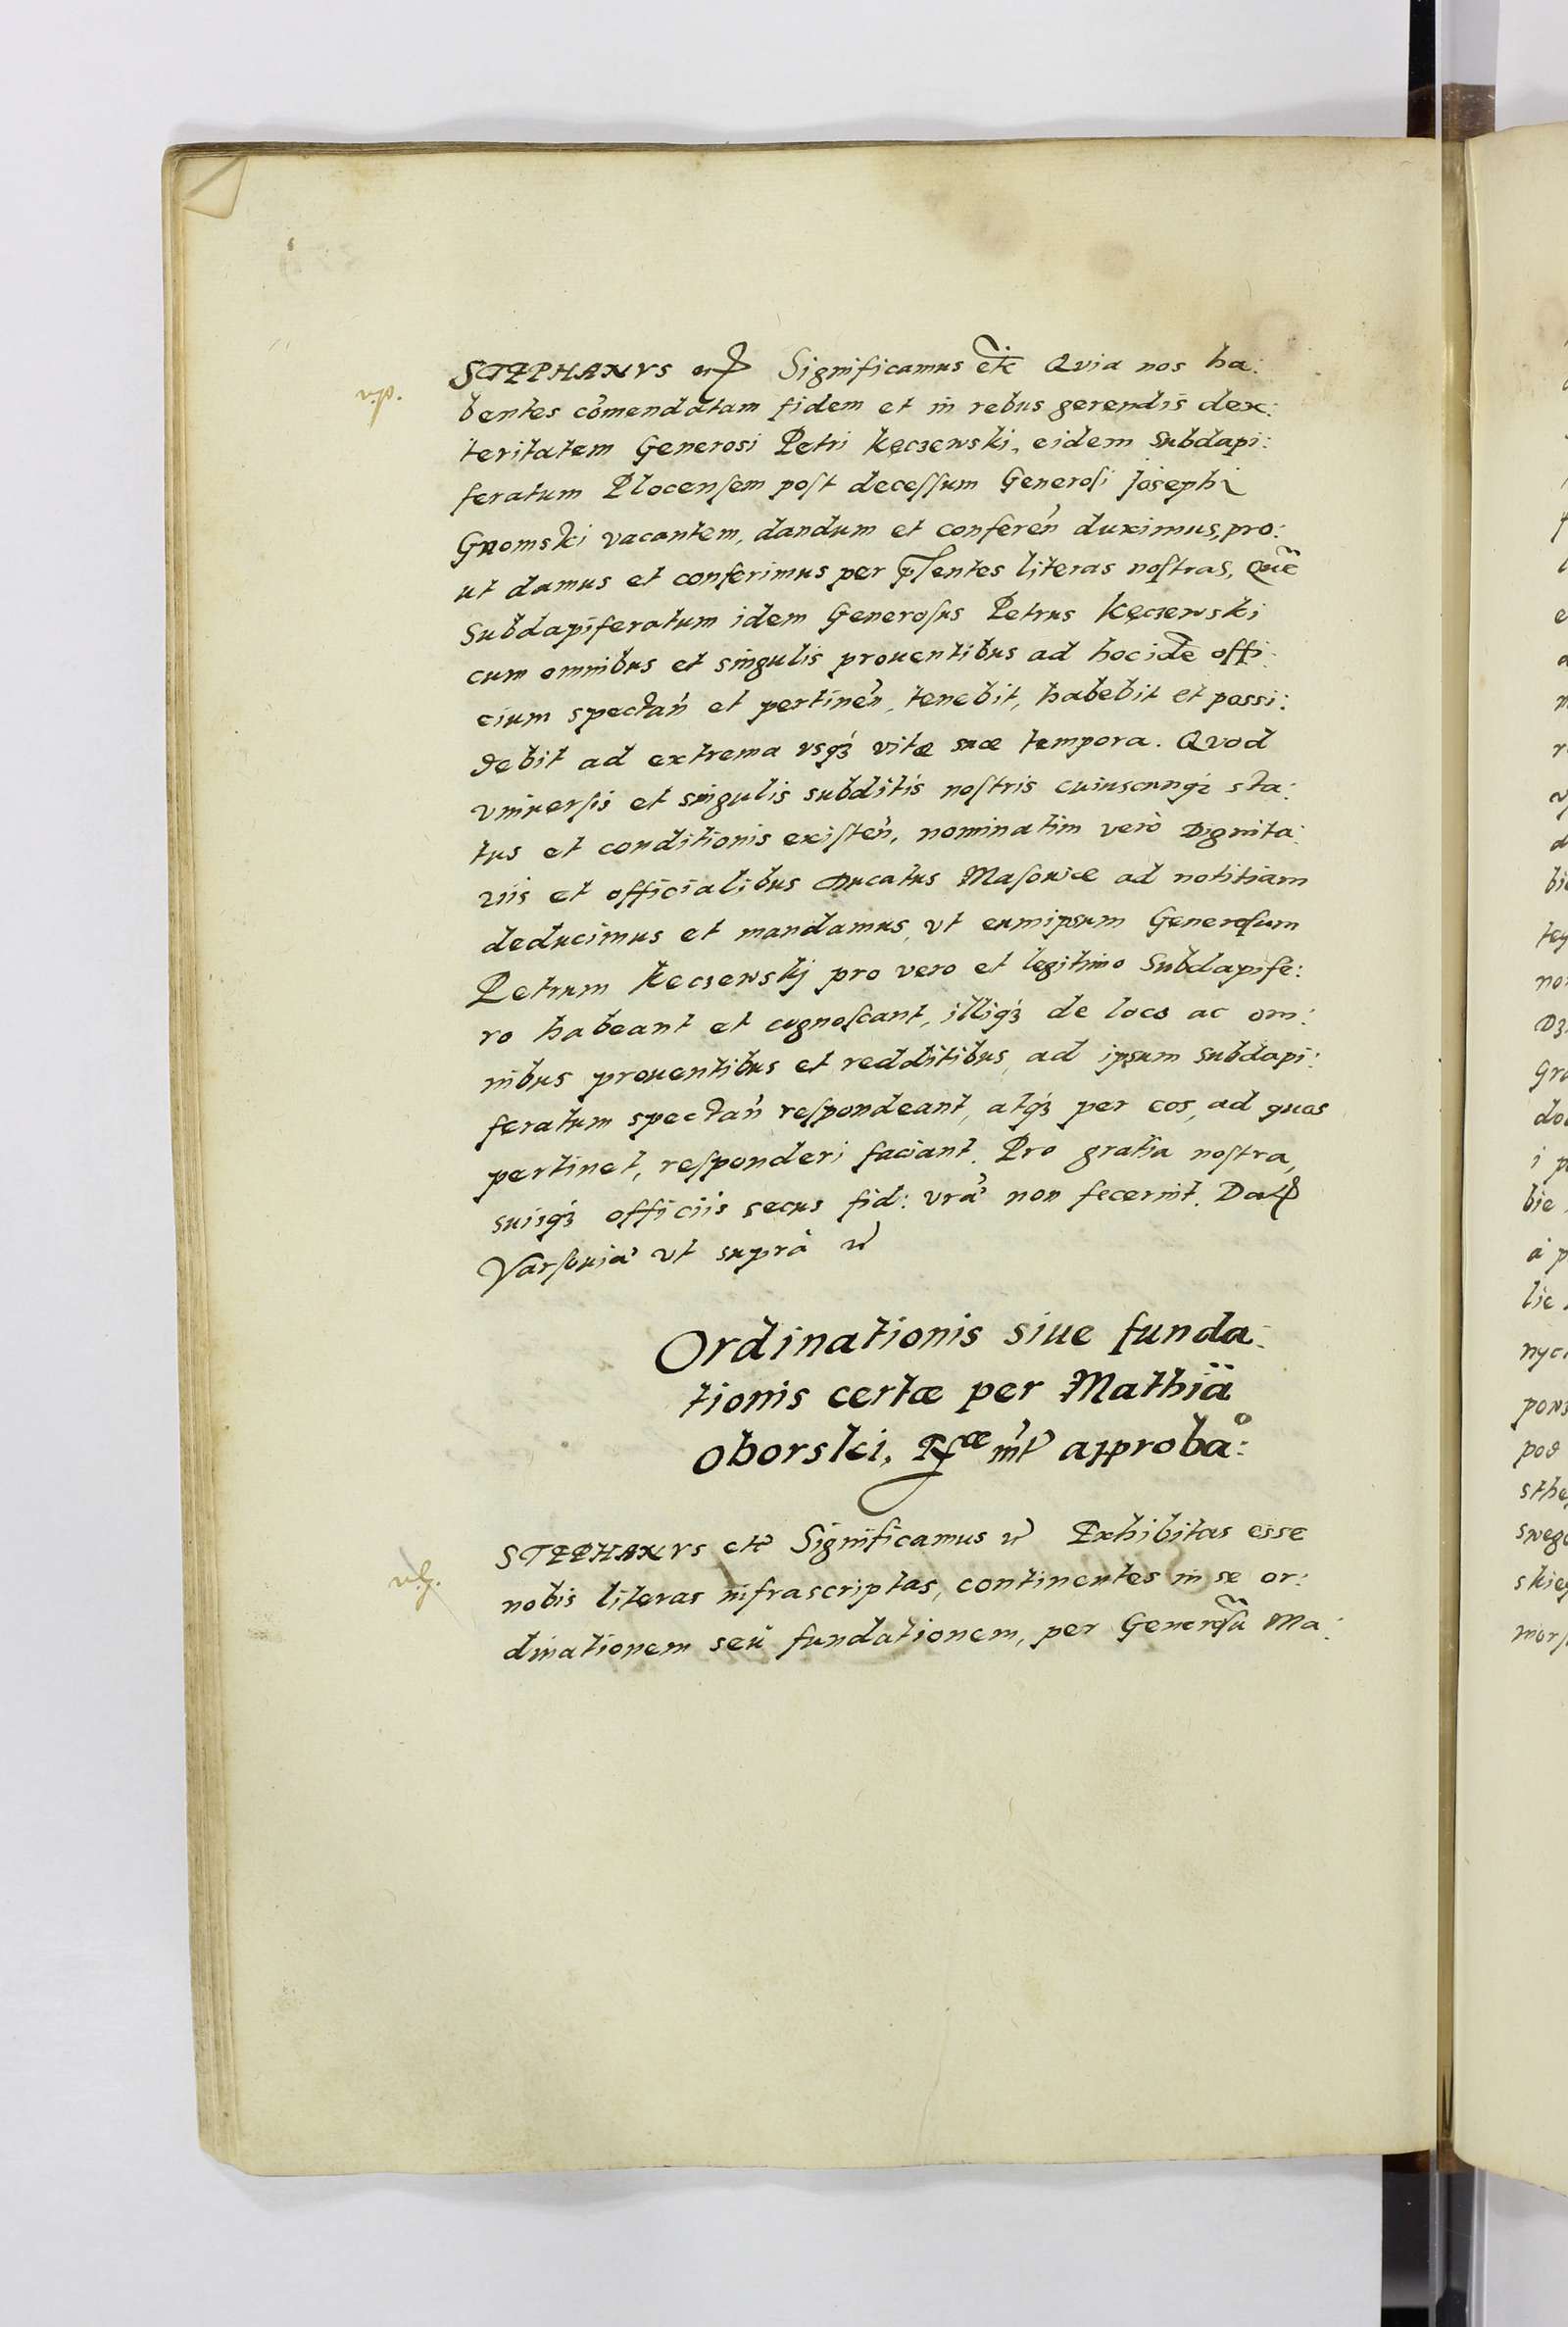 STEPHANVS etc Significamus etc Qvia nos ha:
vp.
bentes cõmendatam fidem et in rebus gerendis dex:
teritatem Generosi Petri Kęczewski, eidem Subdapi:
feratum Plocensem post decessum Generosi Josephi
Gromski vacantem, dandum et conferen̄ duximus, pro:
ut damus et conferimus per p̃sentes literas nostras, Quẽ
Subdapiferatum idem Generosus Petrus Kęczewski
cum omnibus et singulis prouentibus ad hoc idẽ offi:
cium spectan̄ et pertinen̄, tenebit, habebit et possi:
debit ad extrema vsq́ʒ vitæ suæ tempora. Qvod
vniuersis et singulis subditis nostris cuiuscunqʒ sta:
tus et conditionis existen̄, nominatim verò Dignita:
riis et officialibus Ducatus Masouiæ ad notitiam
deducimus et mandamus, vt eumipsum Generosum
Petrum Keczewskj pro vero et legitimo Subdapife:
ro habeant et cognoscant, illiq́ʒ de loco ac om:
nibus prouentibus et redditibus, ad ipsum subdapi:
feratum spectan̄ respondeant, atq́ʒ per eos, ad quos
pertinet, responderi faciant. Pro gratia nostra,
suisq́ʒ officiis secus fid: vrã non fecerint. Dat
Varsouiæ vt suprà etc
Ordinationis siue funda:
tionis certæ per Mathiã
Oborski, fcæ int approbao:
STEPHANVS etc Significamus etc Exhibitas esse
nobis literas infrascriptas, continentes in se or:
dinationem seù fundationem, per Generosũ Ma: